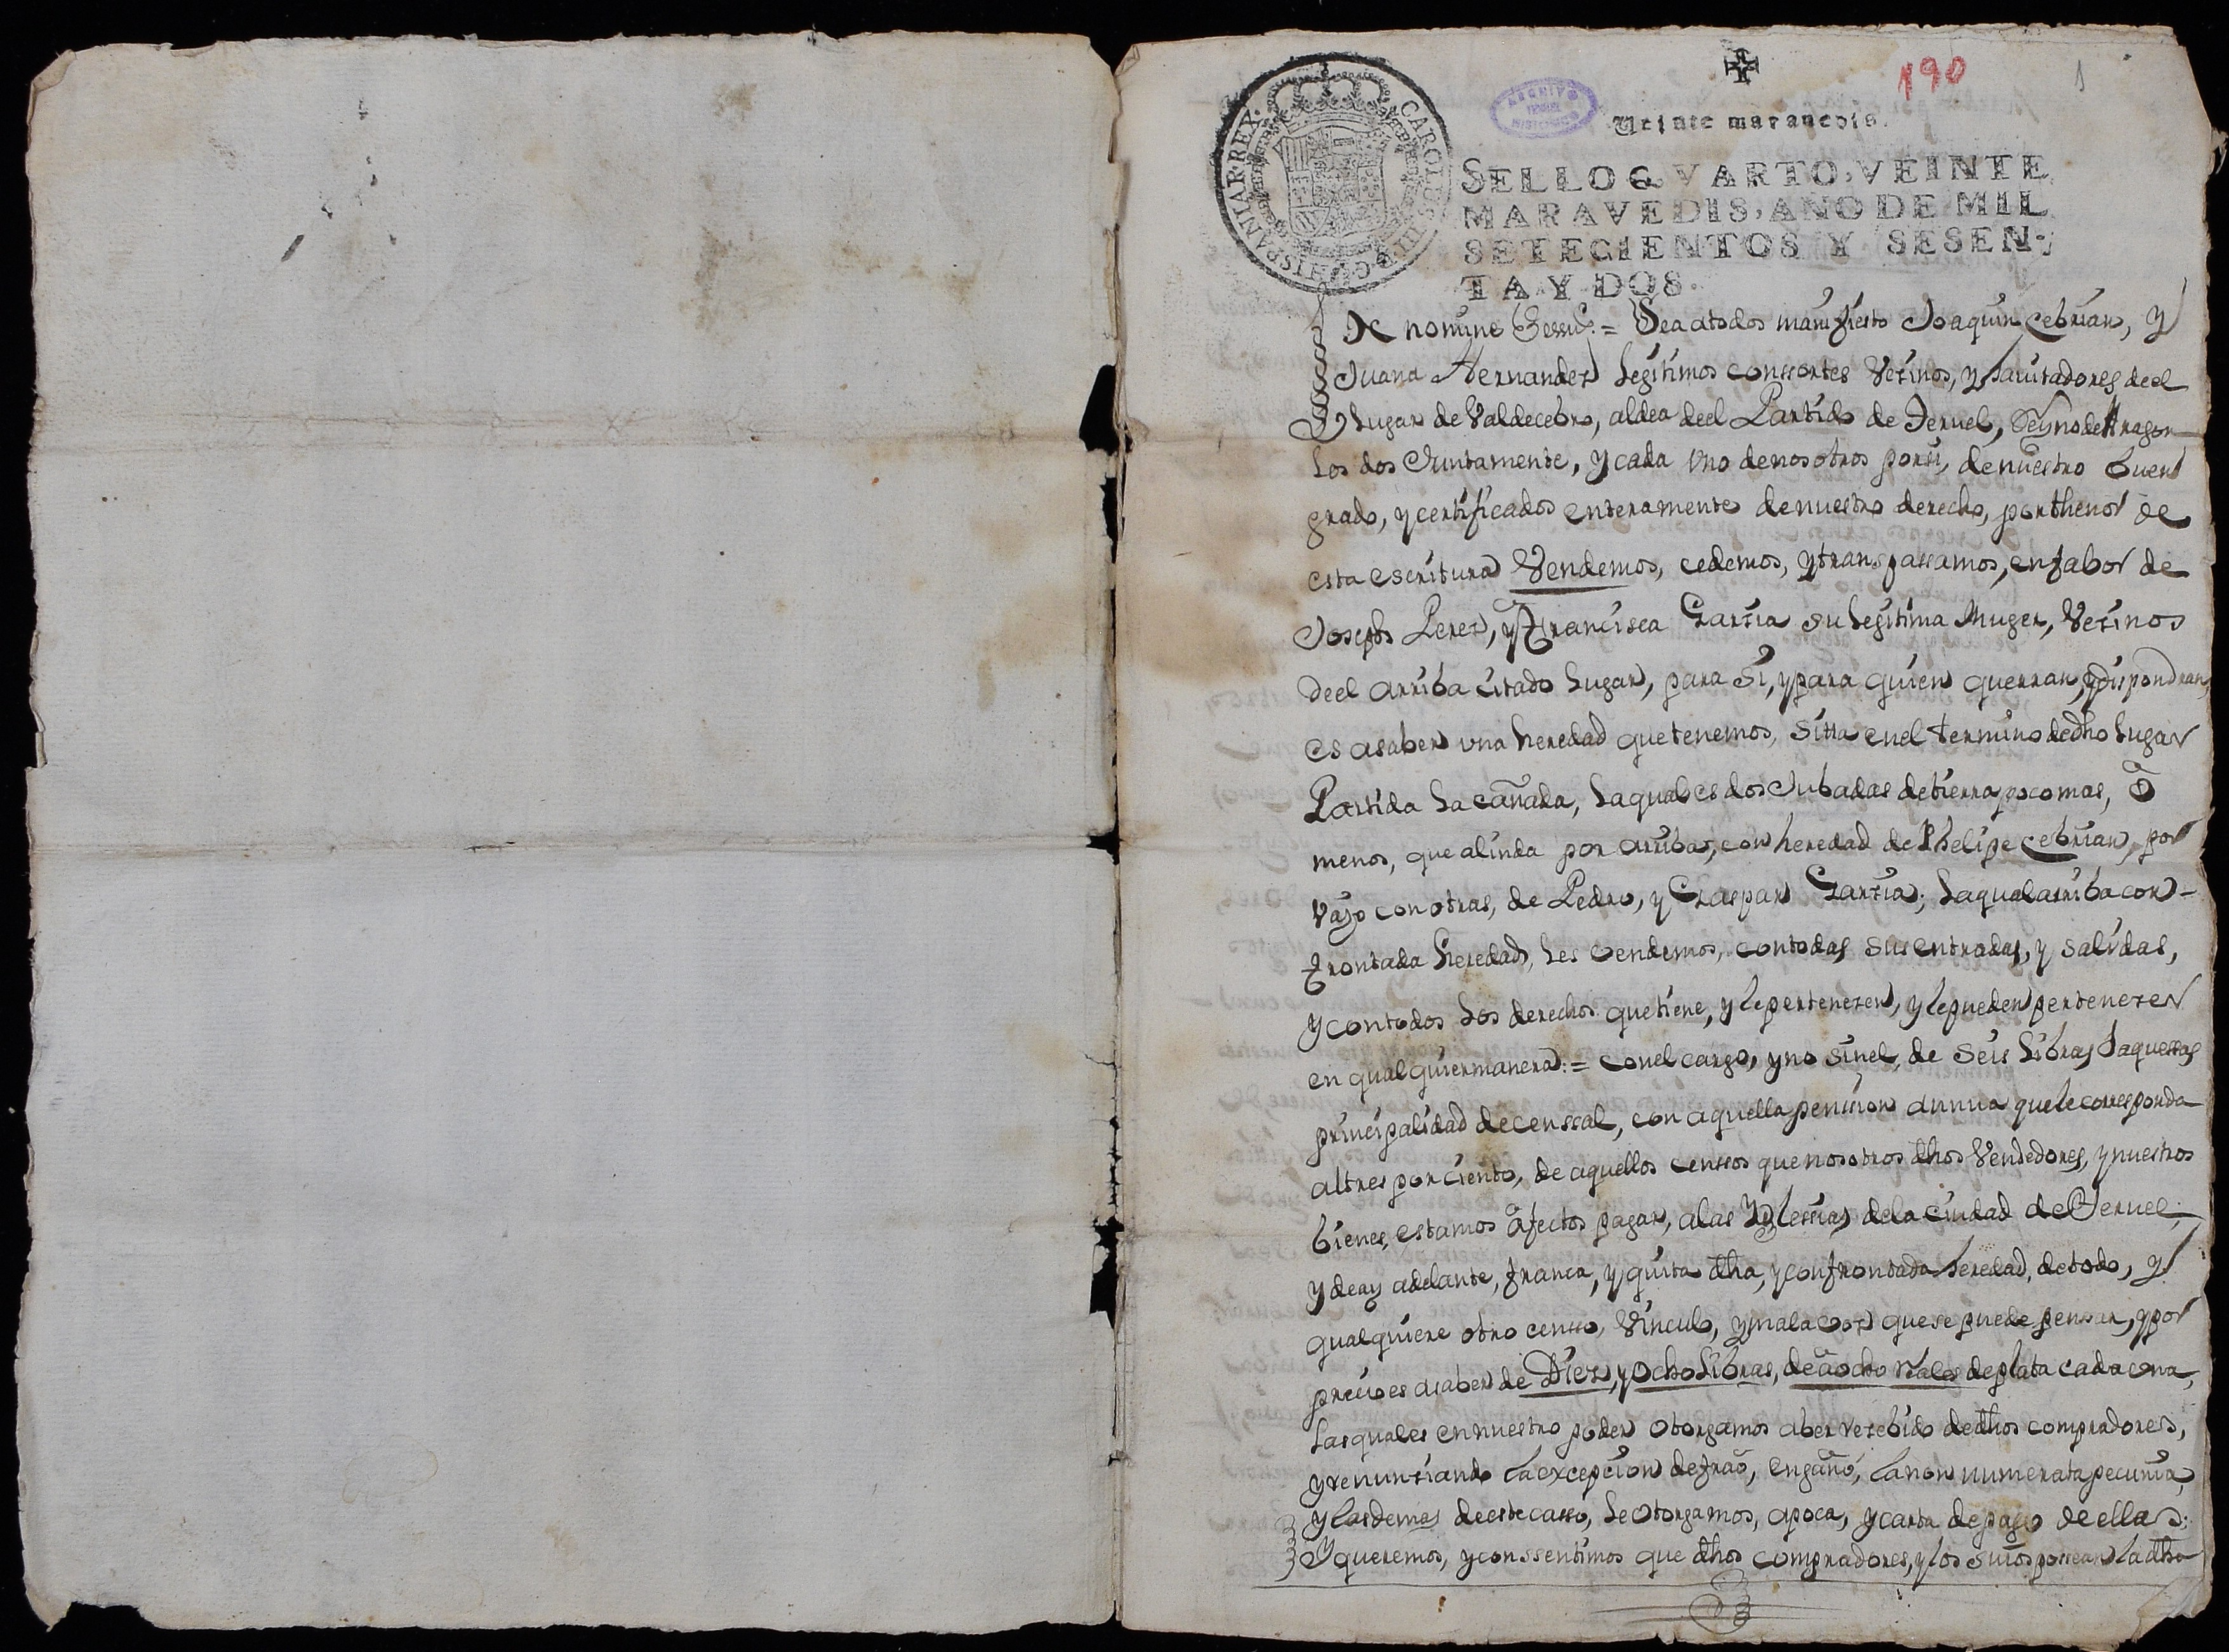 190
1
ARCHIVO HISTORICO
CAROLUS III D G HISPANIAR REX
Veinte maravedis.
SELLO QVARTO, VEINTE
MARAVEDIS, AÑO DE MIL
SETECIENTOS Y SESEN-
TA Y DOS.
In nomine = Sea atodos manifiesto Joaquin Cebrian, y
Juana Hernandez legitimos conssortes Vezinos, y havitadores deel
Lugar de Valdecebro, aldea deel Partido de Teruel, Reyno de Aragon
los dos Juntamente, y cada vno denosotros porsi, de nuestro buen
grado, y certificados enteramente denuestro derecho, por thenor de
esta escritura Vendemos, cedemos, y transpassamos, en fabor de
Joseph Perez, y Francisca Garzia su legitima Muger, Vezinos
deel arriba citado Lugar, para si, y para quien querran, y dispondran,
es asaber vna heredad que tenemos, sitta enel termino dedho Lugar
Partida la cañada, laqual es dos Jubadas detierra poco mas, ô
menos, que alinda por arriba, con heredad de Phelipe Cebrian, por
vajo con otras, de Pedro, y Gaspar Garzia; laqual arriba con-
frontada heredad, les vendemos, contodas sus entradas, y salidas,
y contodos los derechos que tiene, y le pertenezen, y lepueden pertenezer
en qualquier manera: = conel cargo, y no sinel, de seis Libras Jaquessas
principalidad de censsal, con aquella penssion annua quele corresponda
altres por ciento, de aquellos censsos que nosotros dhos Vendedores, y nuestros
bienes, estamos afectos pagar, alas Yglessias dela ciudad de Teruel;
y deay adelante, franca, y quita dha, y confrontada heredad, de todo, y
qualquiere otro censso, Vinculo, y mala voz que se puede penssar, y por
precio es asaber de Diez, y ocho Libras, deaocho reales deplata cada vna,
las quales en nuestro poder otorgamos aber rezebido dedhos compradores,
y renunziando la excepcion defrao, engaño, la non numerata pecunia,
y las demas deeste casso, le otorgamos, apoca, y carta de pago de ellas:
Y queremos, y conssentimos que dhos compradores, y los suios possean la dha